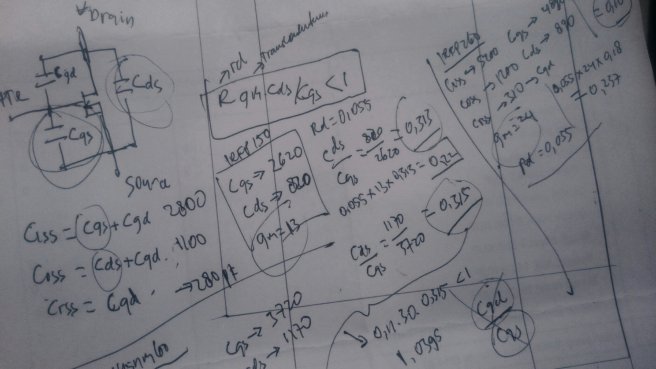 Drain
Cgd
Cds
Cgs
Ciss = Cgs + Cgd 2800
Coss = Cds + Cgd. 1100
Crss = Cgd → 280 pf
→ rd
R gm Cds/Cgs < 1
IRFP150
Cgs → 2620
Cds → 820
gm = 13
Rd = 0,055
Cds/Cgs = 820/2620 = 0,313
0.055 x 13 x 0,313 = 0,22
Cds/Cgs = 1170/3720 = 0,315
Cgs → 3720
Cds → 1170
0,11.30.0.315 < 1
1,0395
Cgd/Cgs
IRFP260
Ciss → 5200
Coss → 1200
Crss → 310 → Cgd
gm = 24
Rd = 0,055
0,055 x 24 x 0,18
= 0,237